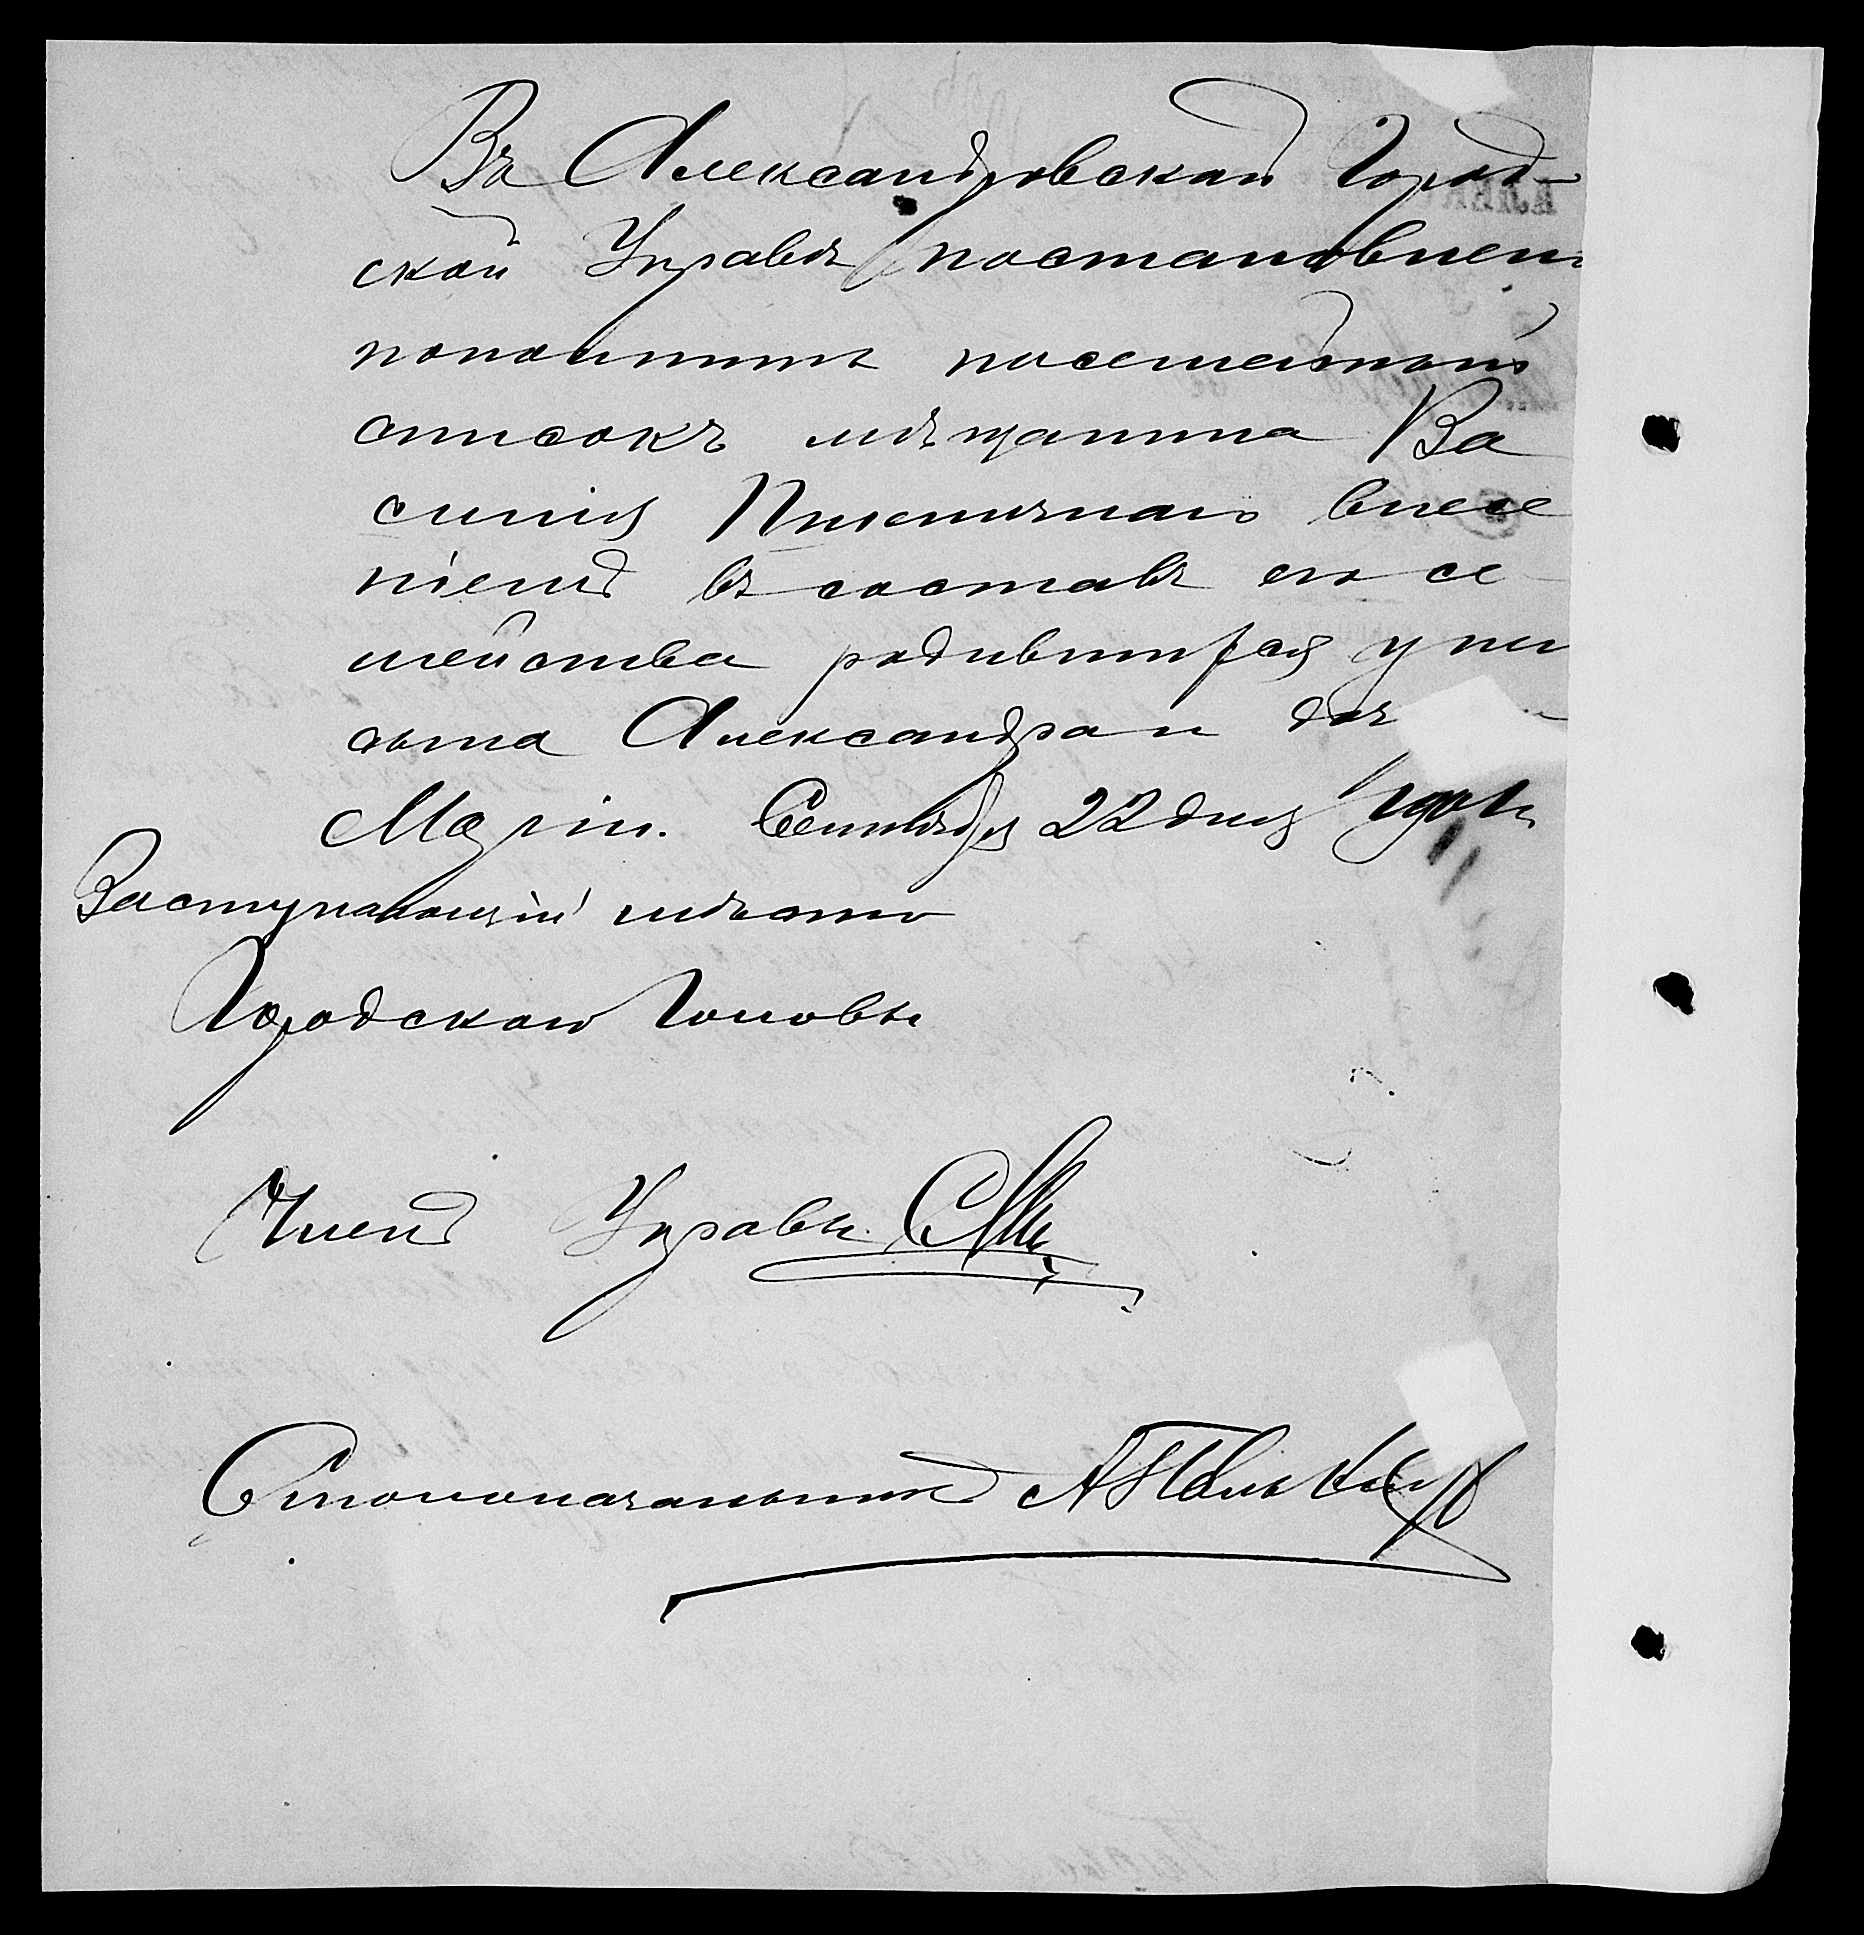 Въ Александровской Город-
ской Управѣ постановлен
пополнить посемейный
списокъ мѣщанина Ва
силія Пшеничнаго внесе
ніемъ въ составъ его се
мейства родившихся у не
сына Александра и доч
Маріи. Сентября 22 дня
Заступающій мѣсто
Городской Головы
Членъ Управы
Столоначальникъ